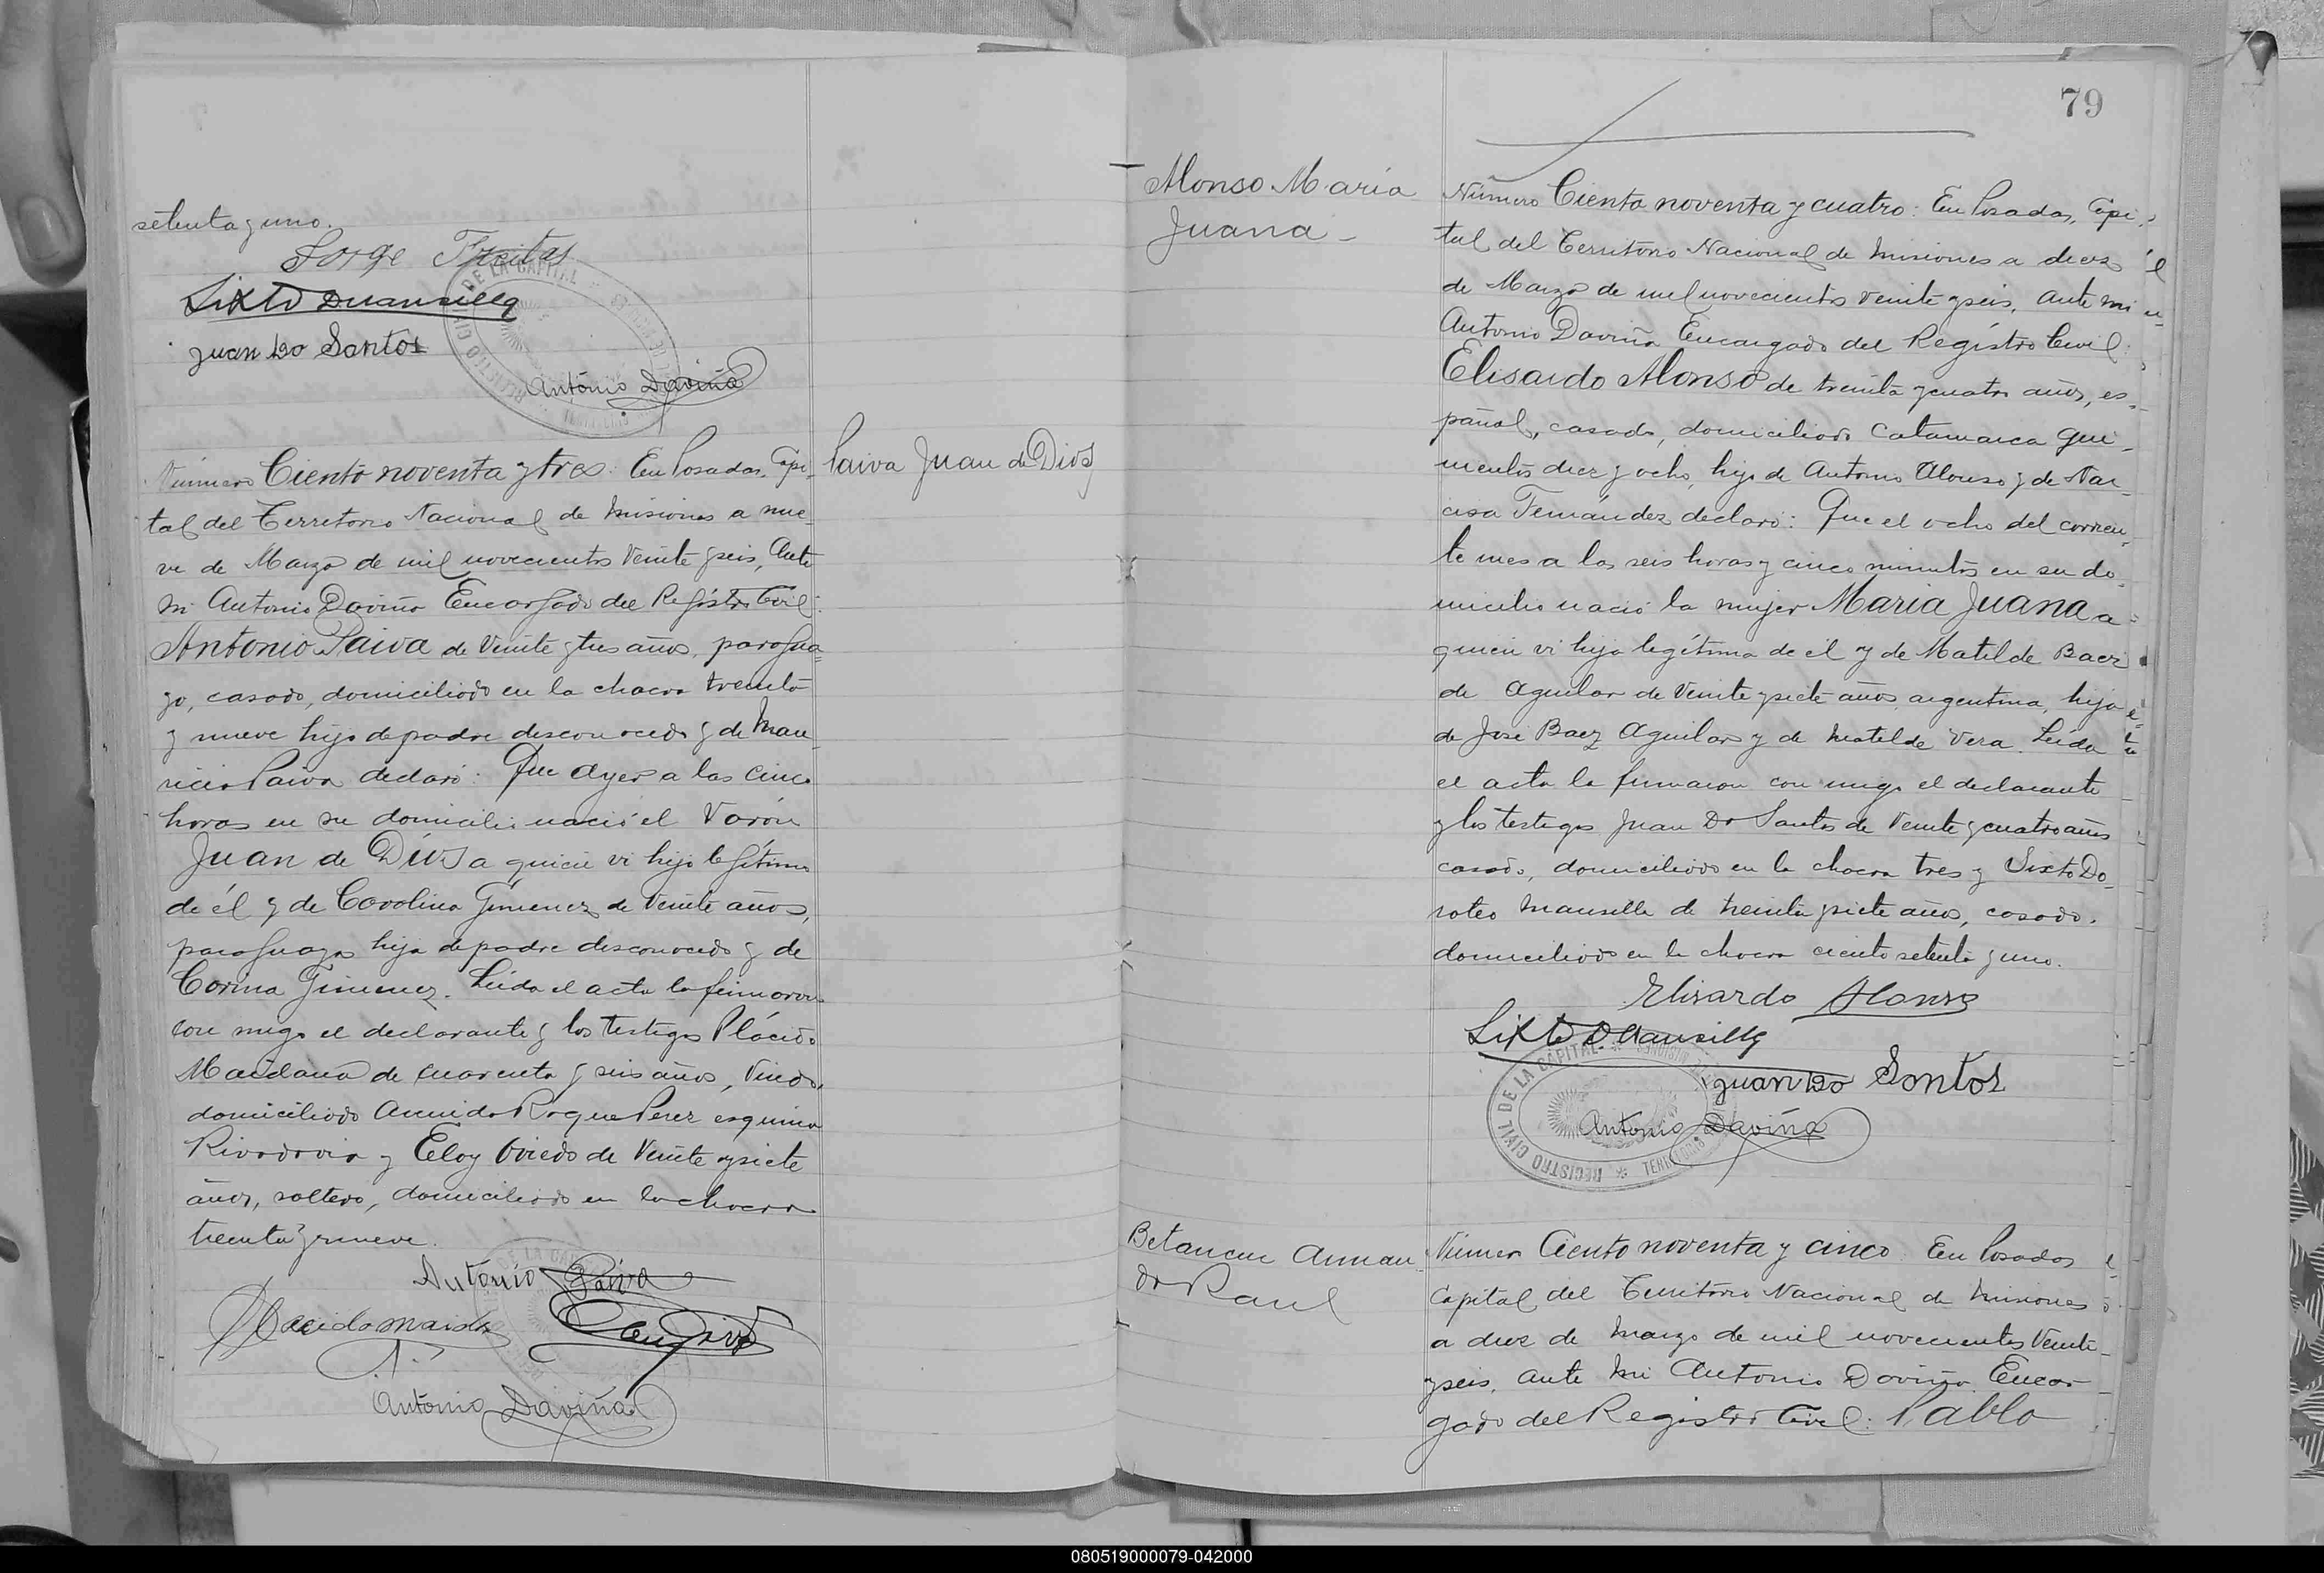 setenta y uno.
Jorge Freitas
Sixto D Mansilla
Juan Do Santos
Antonio Daviña
Número Ciento noventa y tres: En Posadas, Capi-
tal del Territorio Nacional de Misiones a nue-
ve de Marzo de mil novecientos veinte y seis, Ante
mi Antonio Daviña Encargado del Registro Civil:
Antonio Paiva de veinte y tres años, paragua-
yo, casado, domiciliado en la chacra treinta
y nueve hijo de padre desconocido y de Mau-
ricia Paiva declaró: Que ayer a las cinco
horas en su domicilio nació el Varón
Juan de Dios a quien vi hijo legítimo
de él y de Carolina Gimenez de veinte años,
paraguaya hija de padre desconocido y de
Corina Gimenez. Leída el acta la firmaron
con migo el declarante y los testigos Plácido
Maidana de cuarenta y seis años, viudo,
domiciliado Avenida Roque Perez esquina
Rivadavia y Eloy Oviedo de veinte y siete
años, soltero, domiciliado en la chacra
treinta y nueve.
Antonio Paiva
Placido Maida
Antonio Daviña
Paiva Juan de Dios
79
Alonso Maria
Juana -
Número Ciento noventa y cuatro: En Posadas, Capi-
tal del Territorio Nacional de Misiones a diez
de Marzo de mil novecientos veinte y seis, ante mi
Antonio Daviña Encargado del Registro Civil:
Elisardo Alonso de treinta y cuatro años, es-
pañol, casado, domiciliado Catamarca qui-
nientos diez y ocho, hijo de Antonio Alonso y de Nar-
cisa Fernández declaró: Que el ocho del corrien-
te mes a las seis horas y cinco minutos en su do-
micilio nació la mujer Maria Juana a
quien vi hija legítima de él y de Matilde Baez
de Aguilar de veinte y siete años, argentina, hija
de José Baez Aguilar y de Matilde Vera. Leída
el acta la firmaron con migo el declarante
y los testigos Juan Do Santos de veinte y cuatro años
casado, domiciliado en la chacra tres y Sixto Do-
roteo Mansilla de treinta y siete años, casado,
domiciliado en la chacra ciento setenta y uno.
Elisardo Alonso
Sixto D Mansilla
Juan Do Santos
Antonio Daviña
REGISTRO CIVIL DE LA CAPITAL
Betancur Arman-
do Raul
Número Ciento noventa y cinco. En Posadas
Capital del Territorio Nacional de Misiones
a diez de Marzo de mil novecientos veinte
y seis, ante mi Antonio Daviña Encar-
gado del Registro Civil: Pablo
080519000079-042000